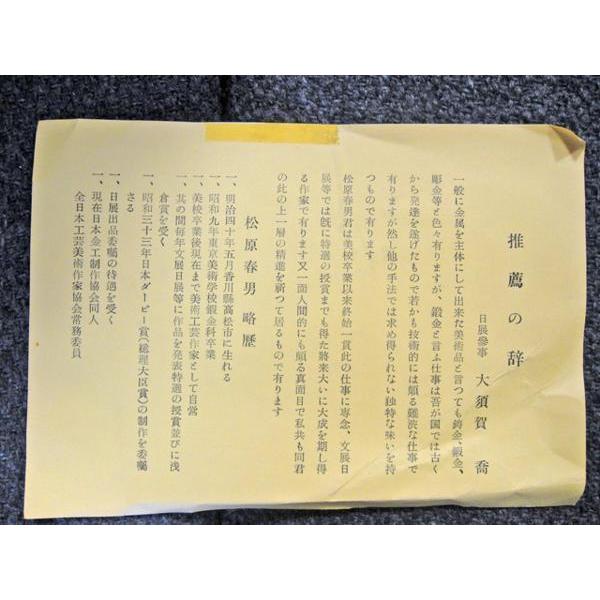 推薦の辞
日展參事 大須賀 喬
一般に金属を主体にして出来た美術品と言つても鋳金、鍛金、
彫金等と色々有りますが、鍛金と言ふ仕事は吾が国では古く
から発達を遂げたもので若かも技術的には頗る難渋な仕事で
有りますが然し他の手法では求め得られない独特な味いを持
つもので有ります
松原春男君は美校卒業以来終始一貫此の仕事に専念、文展日
展等では既に特選の授賞までも得た將来大いに大成を期し得
る作家で有ります又一面人間的にも頗る真面目で私共も同君
の此の上一層の精進を祈つて居るもので有ります
松原春男 略歴
一、明治四十年五月香川縣高松市に生れる
一、昭和九年東京美術学校鍛金科卒業
一、美校卒業後現在まで美術工芸作家として自営
一、其の間毎年文展日展等に作品を発表特選の授賞並びに浅
倉賞を受く
一、昭和三十三年日本ダービー賞(総理大臣賞)の制作を委囑
さる
一、日展出品委囑の待遇を受く
一、現在日本金工制作協会同人
全日本工芸美術作家協会常務委員